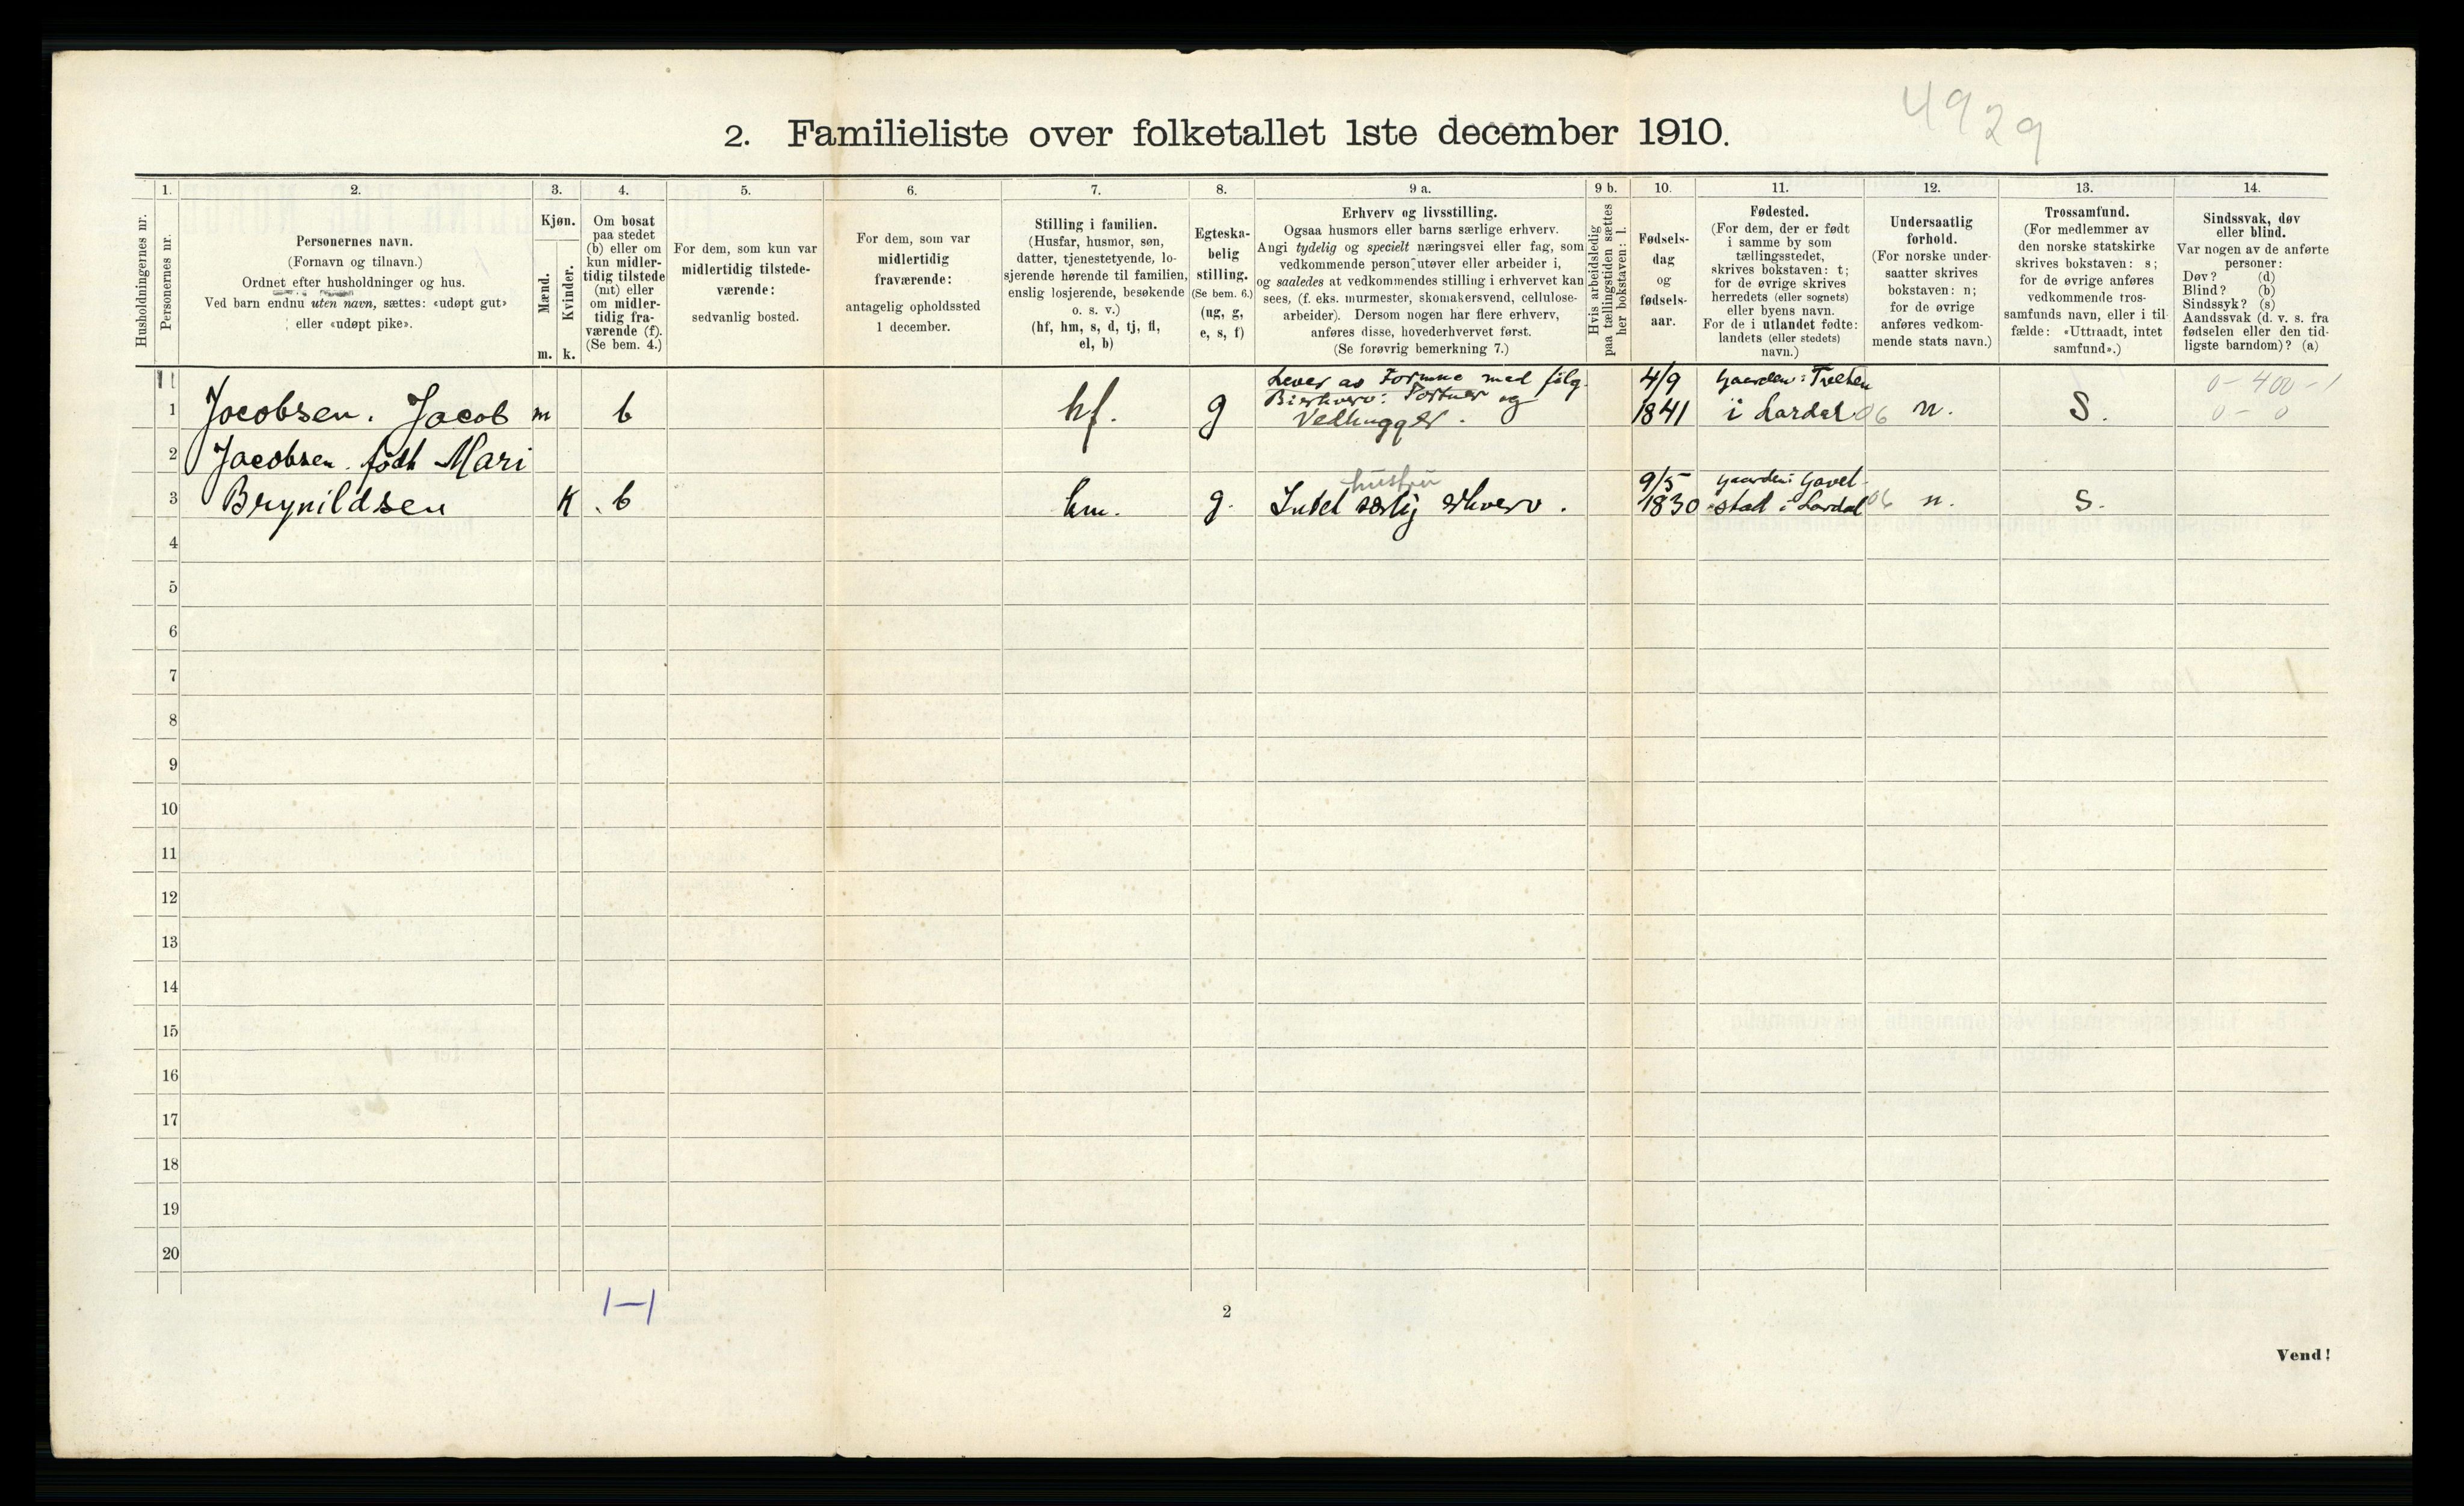 4929
2. Familieliste over folketallet 1ste december 1910.
1. 2. 3. 4. 5. 6. 7. 8. 9 a. 9 b. 10. 11. 12. 13. 14.
Husholdningernes nr.
Personernes nr.
Personernes navn.
(Fornavn og tilnavn.)
Ordnet efter husholdninger og hus.
Ved barn endnu uten navn, sættes: «udøpt gut»
eller «udøpt pike».
Kjøn.
Mænd.
Kvinder.
m. k.
Om bosat
paa stedet
(b) eller om
kun midler-
tidig tilstede
(mt) eller
om midler-
tidig fra-
værende (f).
(Se bem. 4.)
For dem, som kun var
midlertidig tilstede-
værende:
sedvanlig bosted.
For dem, som var
midlertidig
fraværende:
antagelig opholdssted
1 december.
Stilling i familien.
(Husfar, husmor, søn,
datter, tjenestetyende, lo-
sjerende hørende til familien,
enslig losjerende, besøkende
o. s. v.)
(hf, hm, s, d, tj, fl,
el, b)
Egteska-
belig
stilling.
(Se bem. 6.)
(ug, g,
e, s, f)
Erhverv og livsstilling.
Ogsaa husmors eller barns særlige erhverv.
Angi tydelig og specielt næringsvei eller fag, som
vedkommende person utøver eller arbeider i,
og saaledes at vedkommendes stilling i erhvervet kan
sees, (f. eks. murmester, skomakersvend, cellulose-
arbeider). Dersom nogen har flere erhverv,
anføres disse, hovederhvervet først.
(Se forøvrig bemerkning 7.)
Hvis arbeidsledig
paa tællingstiden sættes
her bokstaven: l.
Fødsels-
dag
og
fødsels-
aar.
Fødested.
(For dem, der er født
i samme by som
tællingsstedet,
skrives bokstaven: t;
for de øvrige skrives
herredets (eller sognets)
eller byens navn.
For de i utlandet fødte:
landets (eller stedets)
navn.)
Undersaatlig
forhold.
(For norske under-
saatter skrives
bokstaven: n;
for de øvrige
anføres vedkom-
mende stats navn.)
Trossamfund.
(For medlemmer av
den norske statskirke
skrives bokstaven: s;
for de øvrige anføres
vedkommende tros-
samfunds navn, eller i til-
fælde: «Uttraadt, intet
samfund».)
Sindssvak, døv
eller blind.
Var nogen av de anførte
personer:
Døv? (d)
Blind? (b)
Sindssyk? (s)
Aandssvak (d. v. s. fra
fødselen eller den tid-
ligste barndom)? (a)
Lever av Formue med følg. 4/9 Gaarden: 0-400-1
1 Jacobsen. Jacob m b hf. g Bierhverv: Portner og
Vedhugger. 1841 i Lardal 06 n. S. 0-0
2 Jacobsen. født Mari
hustru 9/5 gaarden: Gavel-
3 Brynildsen K b hm. g. Intet særlig Erhverv. 1830 stad i Lardal 06 n. S.
4
5
6
7
8
9
10
11
12
13
14
15
16
17
18
19
20
1-1
2
Vend!